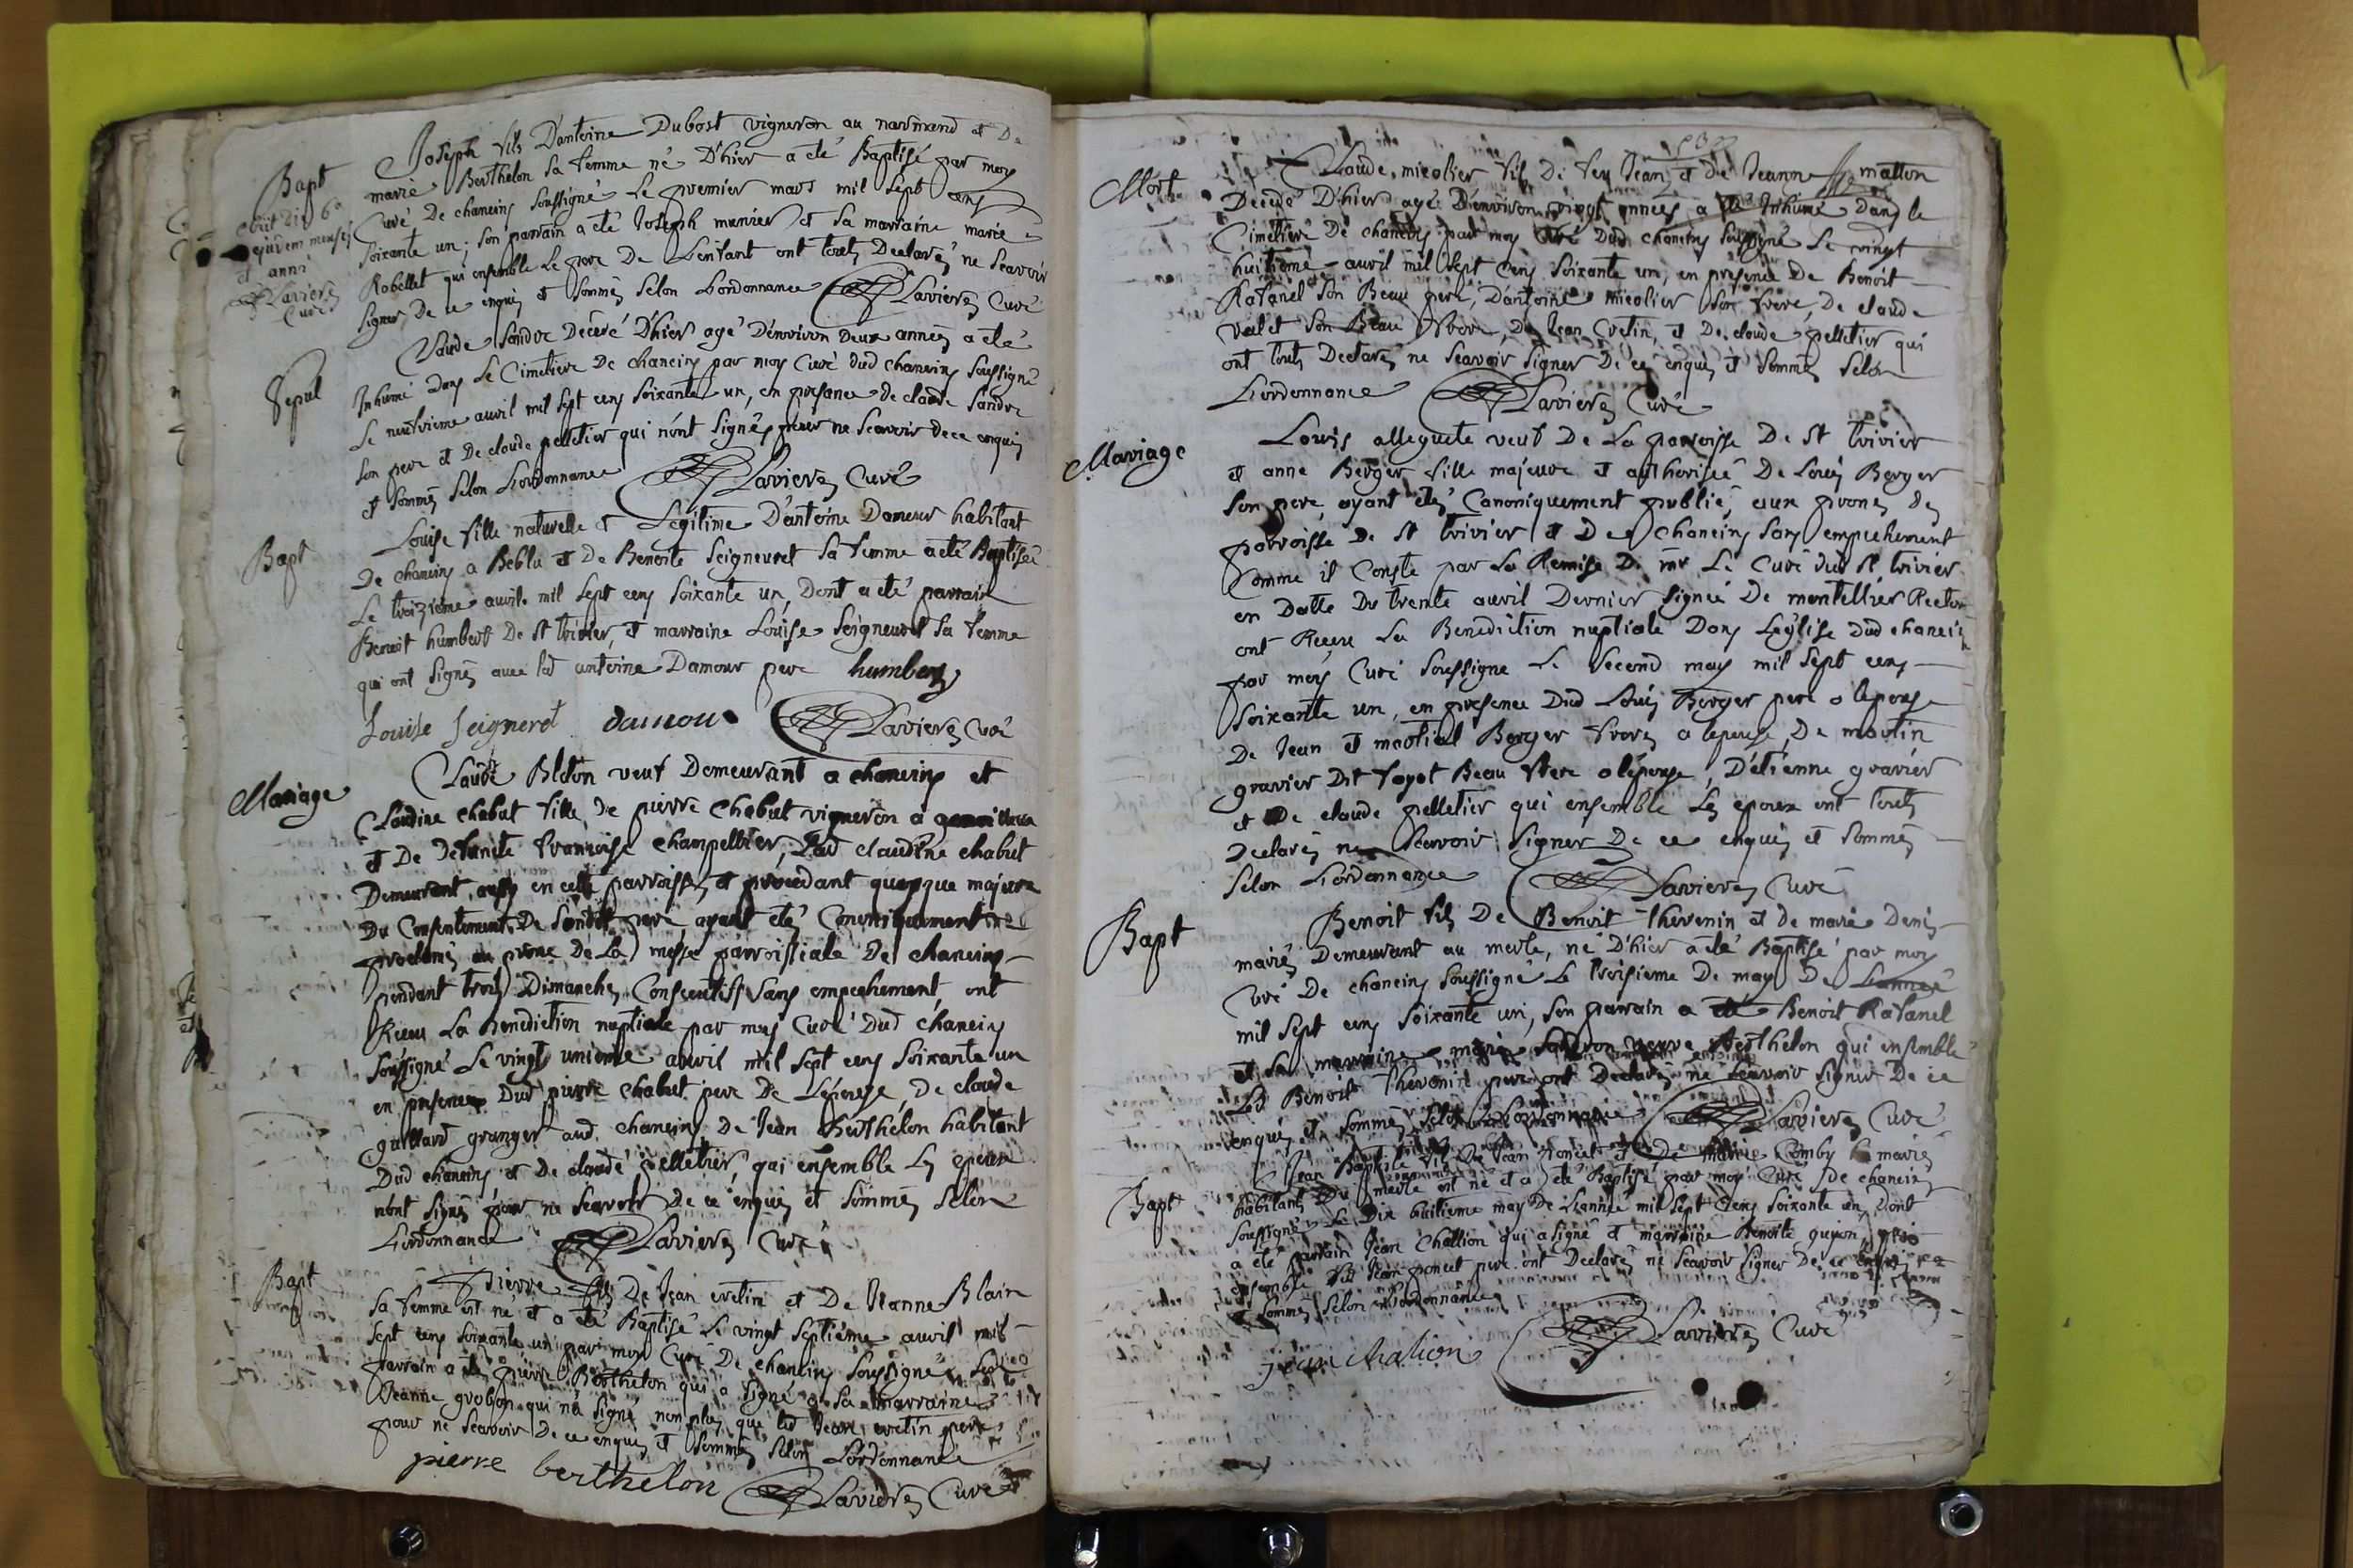 Bapt
obiit die 6a
ejusdem mensis
et anni
Lavieres
Curé
Joseph fils D'antoine Dubost vigneron au narmand et De
marie Berthelon sa femme né D'hier a été Baptisé par moy
Curé De chaneins soussigné Le premier mars mil sept cens
soixante un; son parrain a été Joseph munier et sa marraine marie
Robellet qui ensemble Le pere De L'enfant ont touts Declarés ne scavoir
signer, De ce enquis et sommés selon Lordonnance Lavieres Curé
Sepul
Claude Sandre Décédé D'hier agé D'environ deux années a été
Inhumé dans Le Cimetiere De chaneins par moy Curé dud chaneins soussigné
Le neufvieme avril mil sept cens soixante un, en presence de claude Sandre
son pere et De claude pelletier qui n'ont signés pour ne scavoir de ce enquis
et sommés selon Lordonnance Lavieres Curé
Bapt
Louise fille naturelle et Légitime D'antoine Damour habitant
De chaneins a Beblu et De Benoite Seigneuret sa femme a été Baptisée
Le troizieme avril mil sept cens soixante un, Dont a été parrain
Benoit humbert De st trivier, et marraine Louise Seigneuret sa femme
qui ont signés avec led antoine Damour pere humbert
Louise seigneret damour Lavieres Curé
Mariage
Claude Bleton veuf Demeurant a chaneins et
Claudine chabut fille de pierre Chabut vigneron a
et De defuncte francoise champellier, Lad claudine chabut
Demeurant aussy en cette parroisse, et procedant quoyque majeure
Du Consentement De sondit pere, ayant étés Canoniquement
proclamés au prone De La messe parroissiale De chaneins
pendant trois Dimanches Consecutifs sans empechement, ont
Receu La Benediction nuptiale par moy Curé Dud chaneins
soussigné Le vingt unieme avril mil sept cens soixante un
en presence Dud pierre chabut pere De L'épouse, De claude
guillard granger aud chaneins De Jean Berthelon habitant
Dud chaneins, et De claude pelletier, qui ensemble Les epoux
n'ont signés pour ne scavoir De ce enquis et sommés selon
Lordonnance Lavieres Curé
Bapt
Pierre fils De Jean cretin et De Jeanne Blain
sa femme est né et a été Baptisé Le vingt septiéme avril mil
sept cens soixante un par moy Curé De chaneins soussigné, son
parrain a été pierre Berthelon qui a signé et sa marraine
Jeanne grobon qui n'a signé non plus que led Jean cretin pere
pour ne scavoir De ce enquis et sommés selon Lordonnance
pierre berthelon Lavieres Curé
Mort
Claude micolier fils De feu Jean et de Jeanne matton
Decedé D'hier agé D'environ vingt années a été Inhumé dans le
Cimetiere De chaneins par moy Curé Dud chaneins soussigné Le vingt
huitieme avril mil sept cens soixante un, en presence De Benoit
Ravanel son Beau pere, D'antoine micolier son frere, De claude
valet son Beau frere, De Jean Cretin, et De claude pelletier qui
ont touts Declarés ne scavoir signer De ce enquis et sommés selon
Lordonnance Lavieres Curé
Mariage
Louis alleguete veuf De La parroisse De st trivier
et anne Berger fille majeure et authorisée De Louis Berger
son pere, ayant étés Canoniquement publiés aux prones des
parroisse De st trivier et De chaneins sans empechement
Comme il Conste par La Remise De mr Le Curé dud st trivier
en Datte Du trente avril Dernier signée De montellier Rector
ont Receu La Benediction nuptiale Dans L'église dud chaneins
par moy Curé soussigné Le second may mil sept cens
soixante un, en presence Dud Louis Berger pere a l'epouse
De Jean et martial Berger freres a l'epouse, De martin
gravier Dit fayot Beau frere a l'épouse, D'etienne gravier
et De claude pelletier qui ensemble Les epoux ont touts
Declarés ne scavoir signer De ce enquis et sommés
selon Lordonnance Lavieres Curé
Bapt
Benoit fils De Benoit Thevenin et de marie Denis
mariés Demeurant au merle, né D'hier a été Baptisé par moy
Curé De chaneins soussigné Le troisieme De may De L'année
mil sept cens soixante un, son parrain a été Benoit Ravanel
et sa marraine marie veuve Berthelon qui ensemble
Led Benoit Thevenin pere ont Declarés ne scavoir signer De ce
enquis et sommés selon Lordonnance Lavieres Curé
Bapt
Jean Baptiste fils De Jean poncet et De marie Comby mariés
habitants Du merle est né et a été Baptisé par moy Curé De chaneins
soussigné Le Dix huitieme may De L'année mil sept cens soixante un, Dont
a été parrain Jean Challion qui a signé et marraine Benoite guyon, qui
ensemble led Jean poncet pere ont Declarés ne scavoir signer De ce enquis
et sommés selon Lordonnance
jean chalion Lavieres Curé